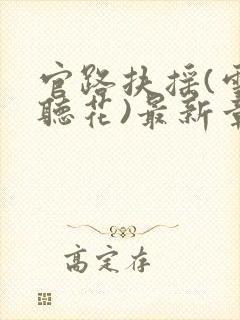 官路扶摇(
聽花)最新
高定存